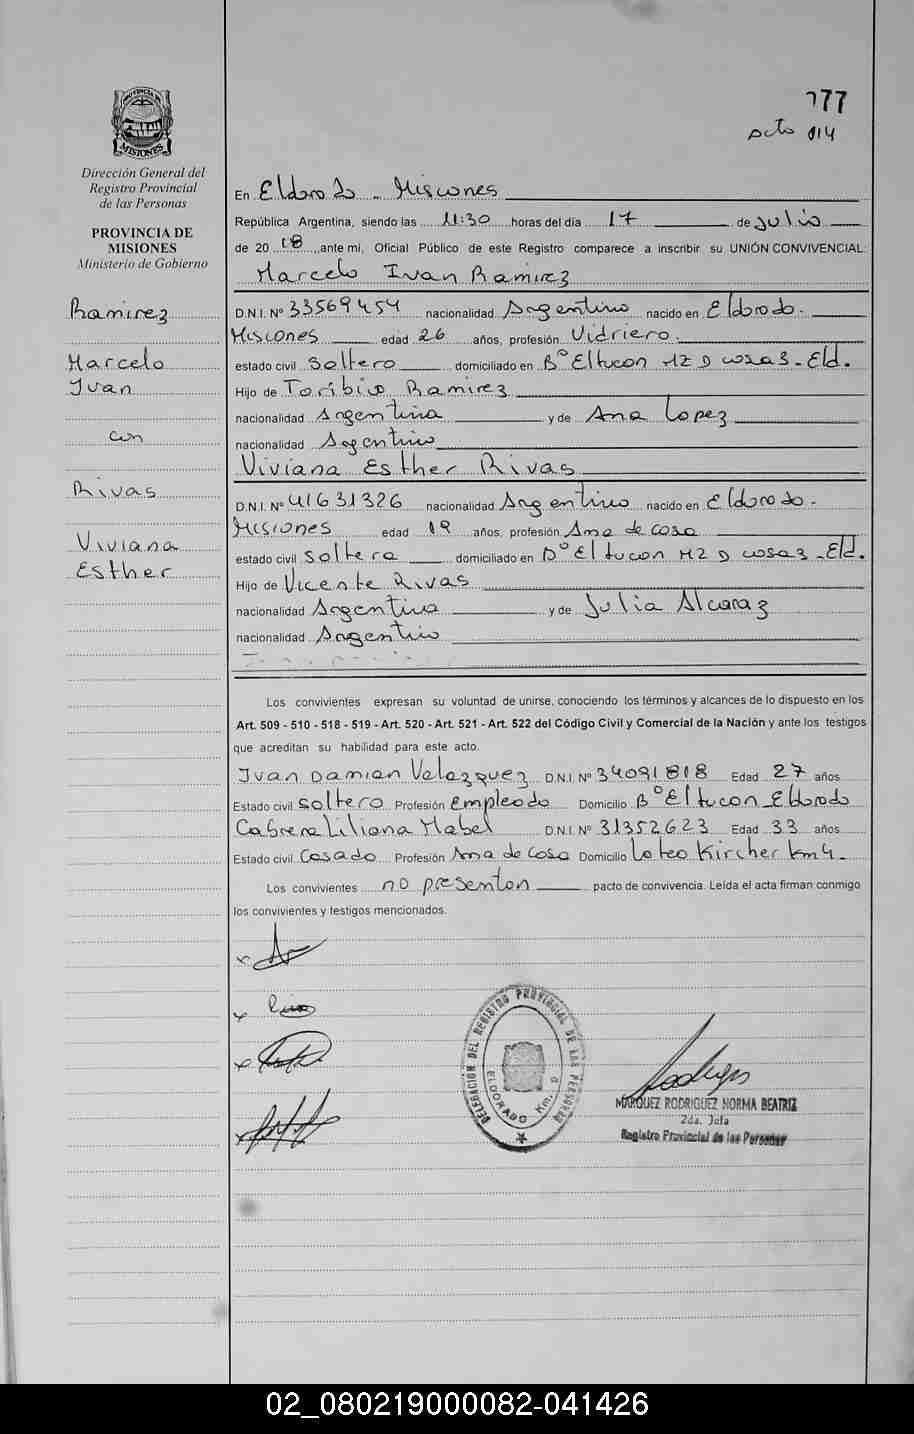 777
Acta 014
PROVINCIA DE
MISIONES
Dirección General del
Registro Provincial
de las Personas
PROVINCIA DE
MISIONES
Ministerio de Gobierno
Ramirez
Marcelo
Ivan
con
Rivas
Viviana
Esther
En Eldorado - Misiones
República Argentina, siendo las 11:30 horas del día 17 de Julio
de 20 18, ante mi, Oficial Público de este Registro comparece a inscribir su UNIÓN CONVIVENCIAL:
Marcelo Ivan Ramirez
D.N.I. Nº 33569454 nacionalidad Argentino nacido en Eldorado.
Misiones edad 26 años, profesión Vidriero.
estado civil Soltero domiciliado en Bº El tucan MZ D casa 3 - Eld.
Hijo de Toribio Ramirez
nacionalidad Argentina y de Ana Lopez
nacionalidad Argentino
Viviana Esther Rivas
D.N.I. Nº 41631326 nacionalidad Argentino nacido en Eldorado.
Misiones edad 19 años, profesión Ama de casa
estado civil Soltera domiciliado en Bº El tucan MZ D casa 3 - Eld.
Hijo de Vicente Rivas
nacionalidad Argentina y de Julia Alcaraz
nacionalidad Argentino
Los convivientes expresan su voluntad de unirse, conociendo los términos y alcances de lo dispuesto en los
Art. 509 - 510 - 518 - 519 - Art. 520 - Art. 521 - Art. 522 del Código Civil y Comercial de la Nación y ante los testigos
que acreditan su habilidad para este acto.
Ivan Damian Velazquez D.N.I. Nº 34091818 Edad 27 años
Estado civil Soltero Profesión Empleado Domicilio Bº El tucan - Eldorado
Cabrera Liliana Mabel D.N.I. Nº 31352623 Edad 33 años
Estado civil Casado Profesión Ama de Casa Domicilio Loteo Kircher km 4.
Los convivientes no presentan pacto de convivencia. Leída el acta firman conmigo
los convivientes y testigos mencionados.
DELEGACIÓN DEL REGISTRO PROVINCIAL DE LAS PERSONAS
ELDORADO Km.
MARQUEZ RODRIGUEZ NORMA BEATRIZ
2da. Jefa
Registro Provincial de las Personas
02_080219000082-041426